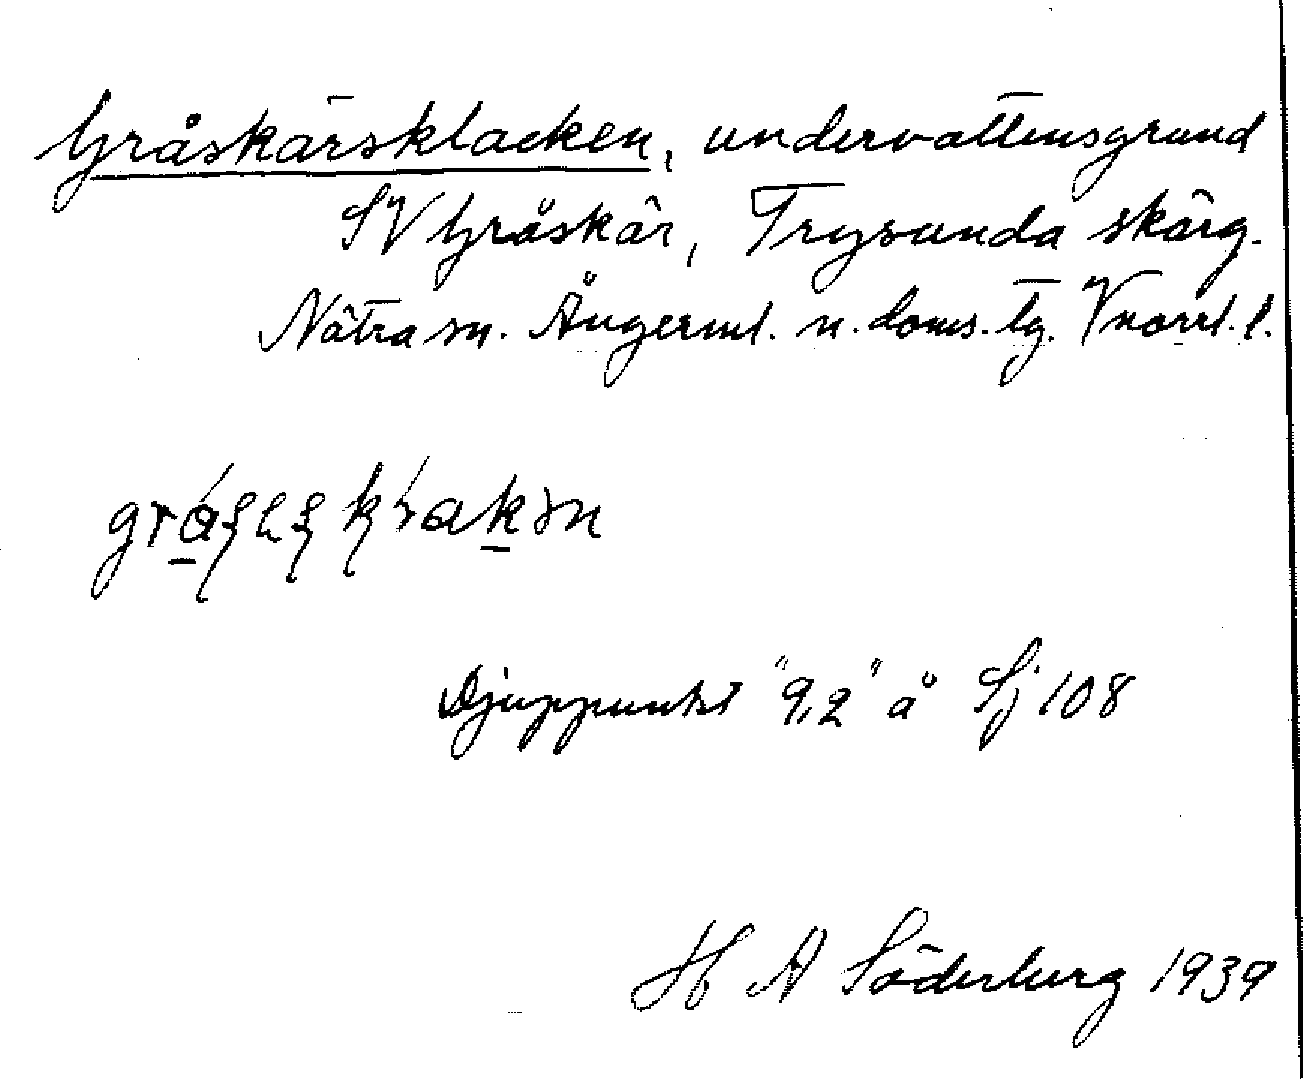 Gråskärsklacken, undervattensgrund
SV Gråskär, Trysunda skärg.
Nätra sn. Ångerml. n. doms. tg. Vnorrl. l.
Djuppunkt "9,2" å Sj 108
H A Söderberg 1939